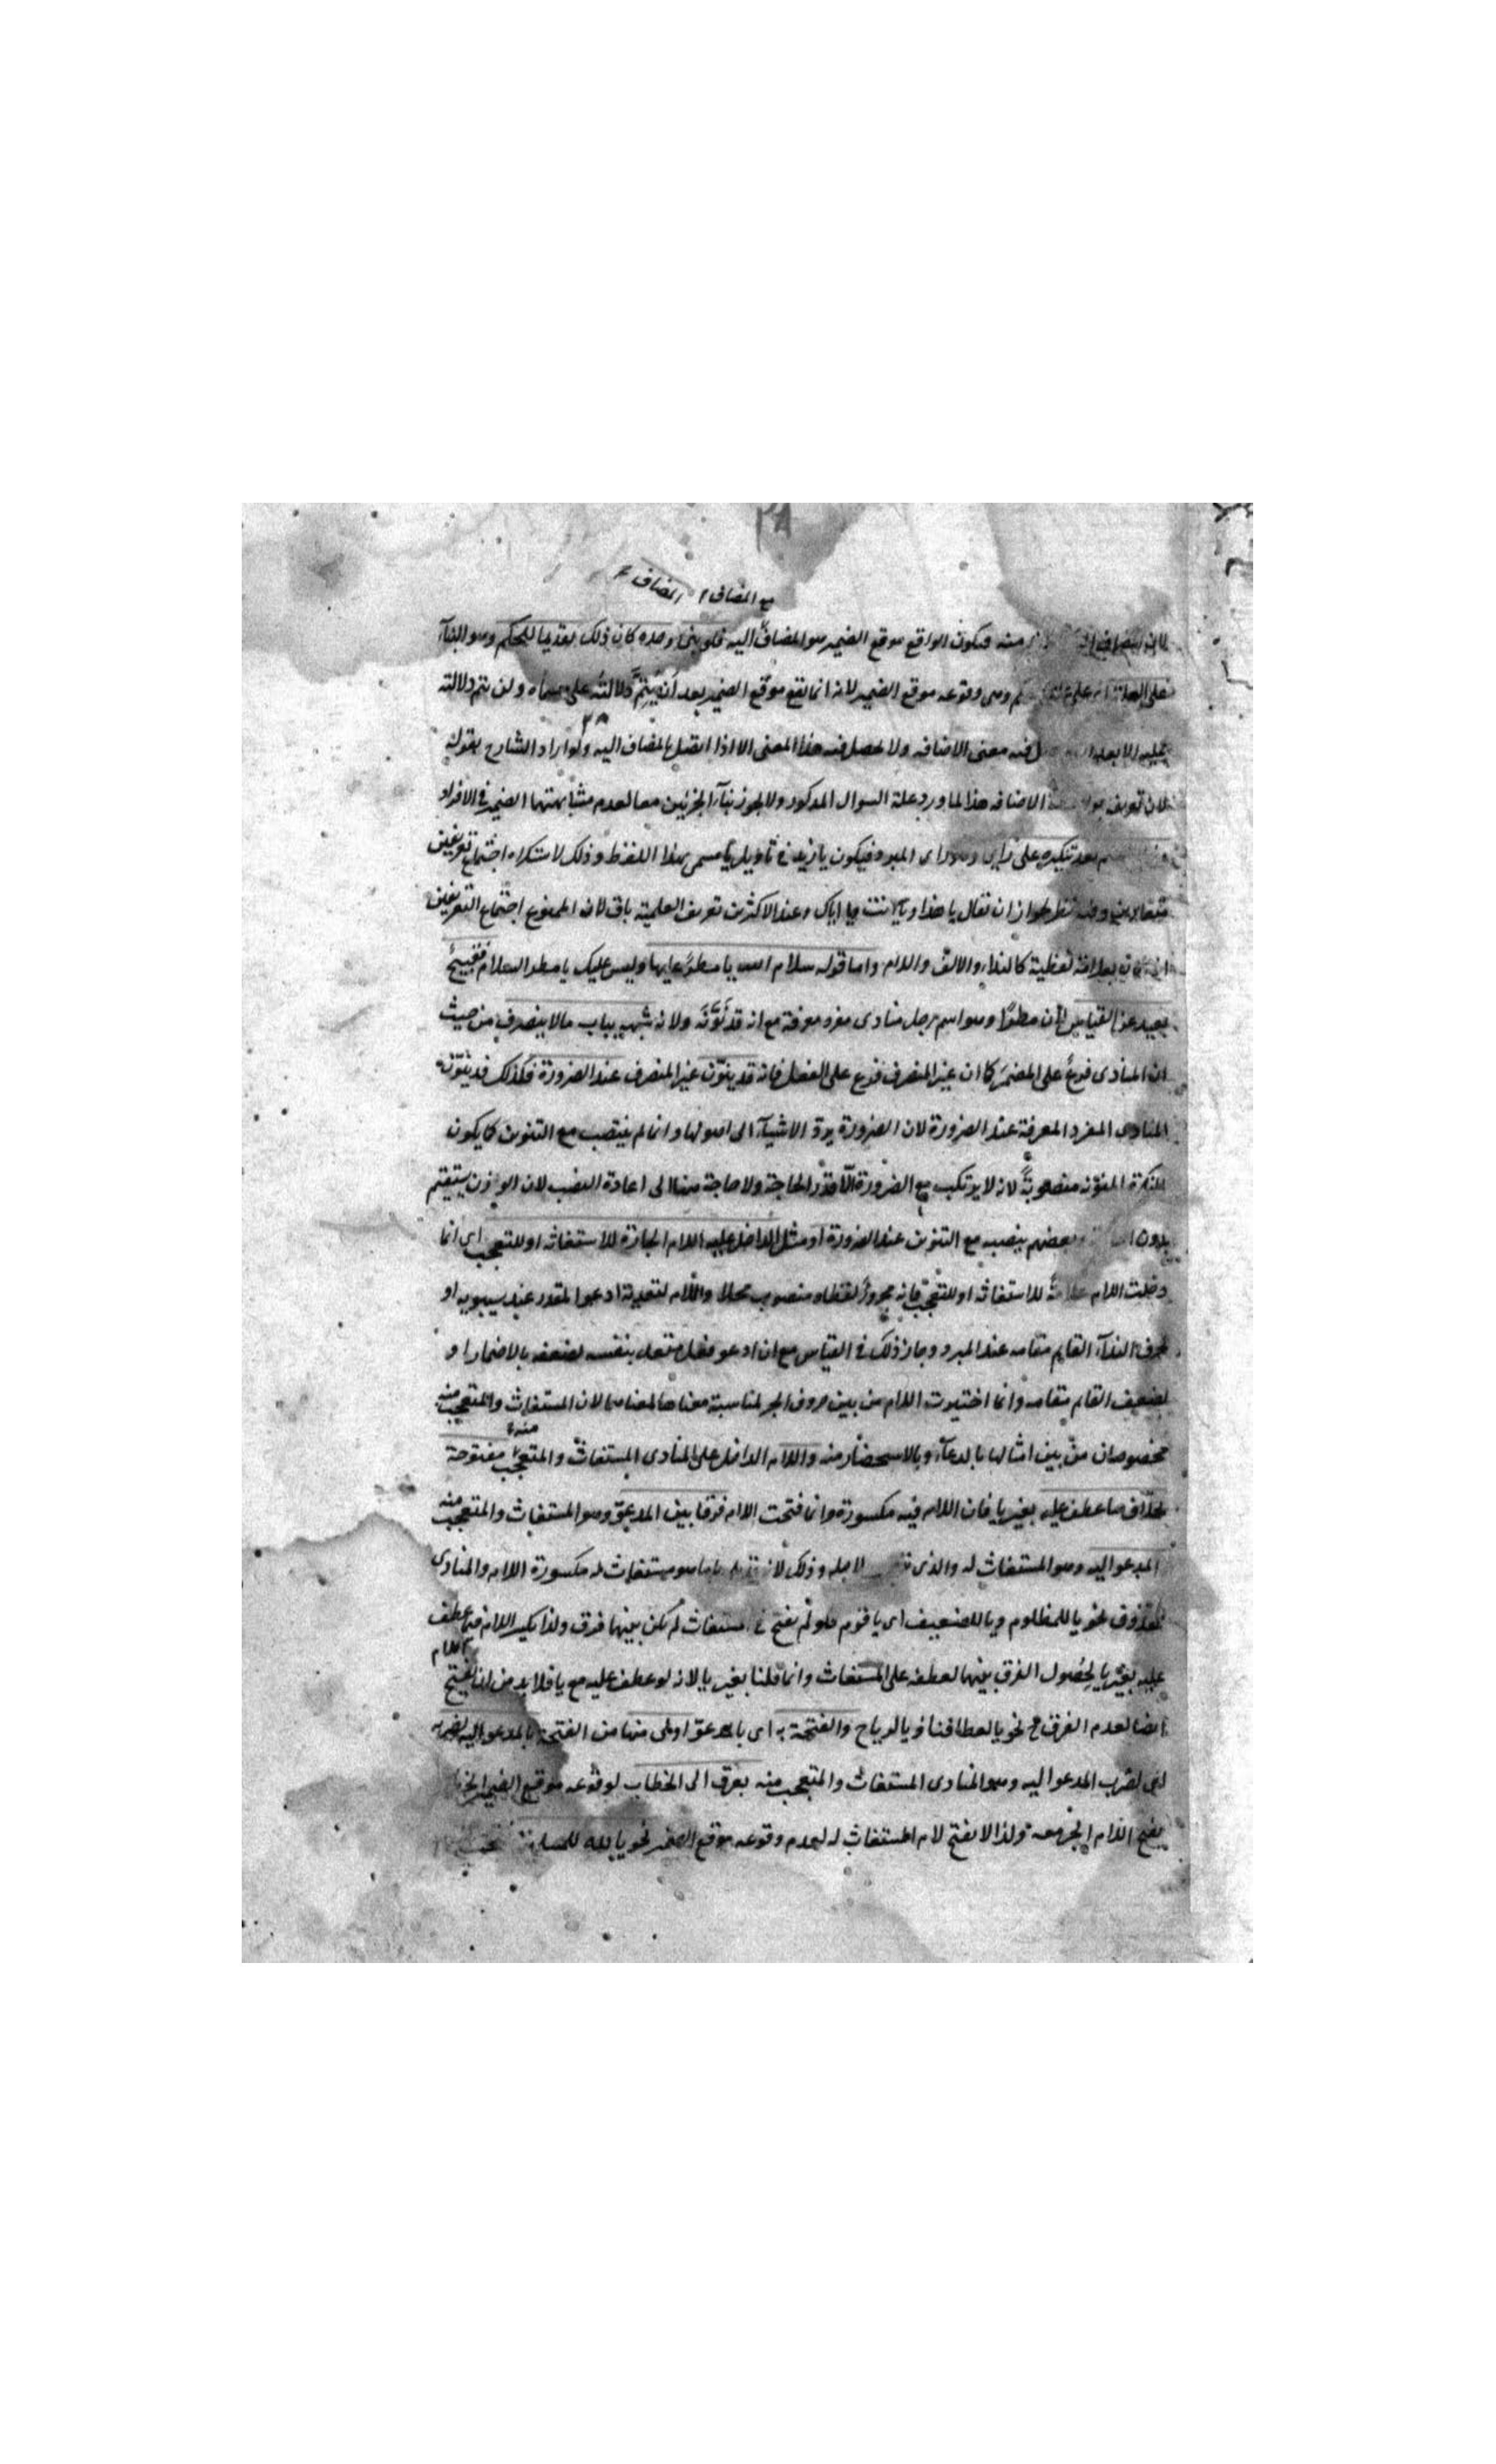 ٢٨
مع المضاف المضاف
منه فيكون الواقع موقع الضمير هو المضاف اليه فلو بنى وحده كان ذلك تقديما للحكم وهو البنآء
على العلة وهى وقوعه موقع الضمير لانه انما يقع موقع الضمير بعد أن يُتِمَّ دلالتُه على مسماه ولن يتم دلالته
عليه الا بعد فيه معنى الاضافه ولا يحصل فيه هذا المعنى الا اذا اتصل بالمضاف اليه ولو اراد الشارح بقوله
لان تعريف الاضافه هذا لما ورد عليه السوال المذكور ولا يجوز بنآء الجزئين معا لعدم مشابهتهما الضمير فى الافراد
بعد تنكيره على راى وهو راى المبرد فيكون يا زيد فى تاويل يا مسمى بهذا اللفظ وذلك لاستكراه اجتماع تعريفين
متغايرين وفيه نظر لجواز ان يقال يا هذا ويا انت ويا اياك وعند الاكثرين تعريف العلمية باق لان الممنوع اجتماع التعريفين
بعلامة لفظية كالنداء والالف واللام واما قوله سلام الله يا مطرٌ عليها وليس عليك يا مطر السلام فقبيحٌ
بعيد عن القياس لان مطرًا وهو اسم رجل منادى مفرد معرفة مع انه قد نَوَّنَه ولانه شبهه بباب مالا ينصرف من حيث
ان المنادى فرعٌ على المضمر كما ان غير المنصرف فرع على الفعل فانه قد ينوّن غير المنصرف عند الضرورة فكذلك قد ينوّنه
المنادى المفرد المعرفة عند الضرورة لان الضرورة يردّ الاشيآء الى اصولها وانما لم ينتصب مع التنوين كما يكون
النكرة المنوّنة منصوبةً لانه لا يرتكب مع الضرورة الّا قدْر الحاجة ولا حاجة هنا الى اعادة النصب لان الوزن يستقيم
بدون وبعضهم ينصبه مع التنوين عند الضرورة او مثل الداخل عليه اللام الجارة للاستغاثه او للتعجب اى انما
دخلت اللام علامةً للاستغاثه او للتعجب فانه مجرورٌ لفظا ومنصوب محلا واللام لتعدية ادعوا المقدر عند سيبويه او
لحرف الندآء القايم مقامه عند المبرد وجاز ذلك فى القياس مع ان ادعو فعل متعد بنفسه لضعفه بالاضمار او
لضعف القايم مقامه وانما اختيرت اللام من بين حروف الجر لمناسبة معناها لمعناهما لان المستغاث والمتعجب منه
مخصوصان من بين امثالهما بالدعآء وبالاستحضار منه واللام الداخل على المنادى المستغاث والمتعجب منه مفتوحة
بخلاف ما عطف عليه بغير يا فان اللام فيه مكسورة وانما فتحت اللام فرقا بين المدعوّ وهو المستغاث والمتعجب منه
المدعو اليه وهو المستغاث له والذى لاجله وذلك لانه مستغاث له مكسورة اللام والمنادى
محذوف نحو يا للمظلوم ويا للضعيف اى يا قوم فلو لم يفتح فى مستغاث لم يكن بينهما فرق ولذا يكسر اللام فيما عطف
عليه بغير يا لحُصُول الفرق بينهما لعطفه على المستغاث وانما قلنا بغير يا لانه لو عطف عليه مع يا فلا بد من ان يفتح اللام
ايضا لعدم الفرق ح نحو يا لعطافنا ويا لرياح والفتحة به اى بالمدعوّ اولى منها من الفتحة بالمدعو اليه لقربه
اى لقرب المدعو اليه وهو المنادى المستغاث والمتعجب منه بعرق الى الخطاب لوقوعه موقع الضمير
يفتح اللام الجر معه ولذا لا يفتح لام المستغاث له لعدم وقوعه موقع الضمير نحو يا لله